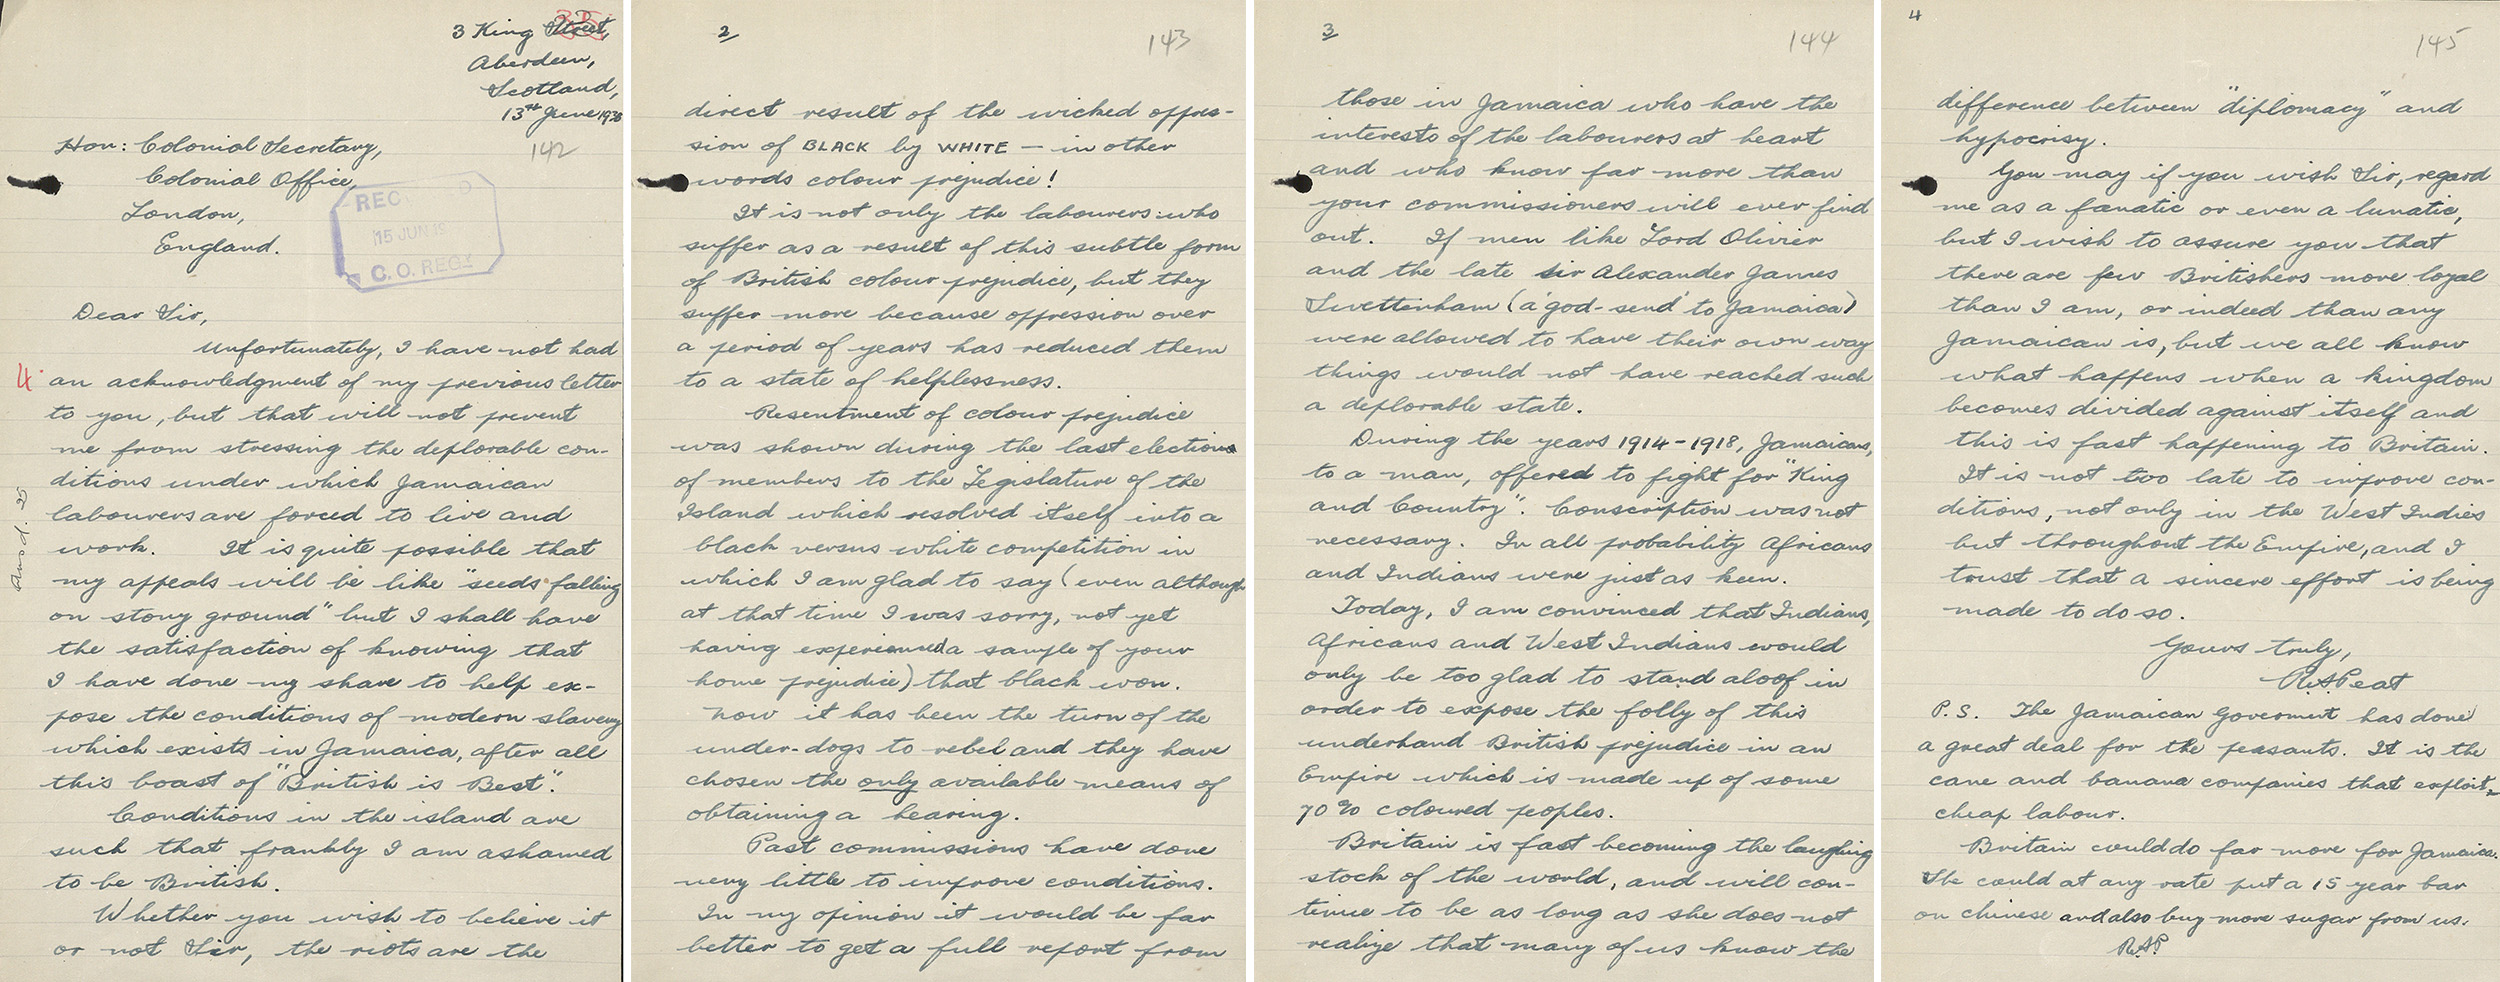 3 King Street,
Aberdeen,
Scotland,
13th June 1938
142
Hon: Colonial Secretary,
Colonial Office,
London,
England.
15 JUN 19
C. O. REGY
Dear Sir,
Unfortunately, I have not had
4
an acknowledgment of my previous letter
to you, but that will not prevent
me from stressing the deplorable con-
ditions under which Jamaican
labourers are forced to live and
work. It is quite possible that
my appeals will be like "seeds falling
on stony ground" but I shall have
the satisfaction of knowing that
I have done my share to help ex-
pose the conditions of modern slavery
which exists in Jamaica, after all
this boast of "British is Best".
Conditions in the island are
such that frankly I am ashamed
to be British.
Whether you wish to believe it
or not Sir, the riots are the
2
143
direct result of the wicked oppres-
sion of BLACK by WHITE — in other
words colour prejudice!
It is not only the labourers who
suffer as a result of this subtle form
of British colour prejudice, but they
suffer more because oppression over
a period of years has reduced them
to a state of helplessness.
Resentment of colour prejudice
was shown during the last elections
of members to the Legislature of the
Island which resolved itself into a
black versus white competition in
which I am glad to say (even although
at that time I was sorry, not yet
having experienced a sample of your
home prejudice) that black won.
Now it has been the turn of the
under-dogs to rebel and they have
chosen the only available means of
obtaining a hearing.
Past commissions have done
very little to improve conditions.
In my opinion it would be far
better to get a full report from
3
144
those in Jamaica who have the
interests of the labourers at heart
and who know far more than
your commissioners will ever find
out. If men like Lord Olivier
and the late Sir Alexander James
Swettenham (a 'god-send' to Jamaica)
were allowed to have their own way
things would not have reached such
a deplorable state.
During the years 1914-1918, Jamaicans,
to a man, offered to fight for "King
and Country". Conscription was not
necessary. In all probability Africans
and Indians were just as keen.
Today, I am convinced that Indians,
Africans and West Indians would
only be too glad to stand aloof in
order to expose the folly of this
underhand British prejudice in an
Empire which is made up of some
70% coloured peoples.
Britain is fast becoming the laughing
stock of the world, and will con-
tinue to be as long as she does not
realize that many of us know the
4
145
difference between "diplomacy" and
hypocrisy.
You may if you wish Sir, regard
me as a fanatic or even a lunatic,
but I wish to assure you that
there are few Britishers more loyal
than I am, or indeed than any
Jamaican is, but we all know
what happens when a kingdom
becomes divided against itself and
this is fast happening to Britain.
It is not too late to improve con-
ditions, not only in the West Indies
but throughout the Empire, and I
trust that a sincere effort is being
made to do so.
Yours truly,
R.A.Peat
P.S. The Jamaican Government has done
a great deal for the peasants. It is the
cane and banana companies that exploit
cheap labour.
Britain could do far more for Jamaica.
She could at any rate put a 15 year bar
on chinese and also buy more sugar from us.
R.A.P